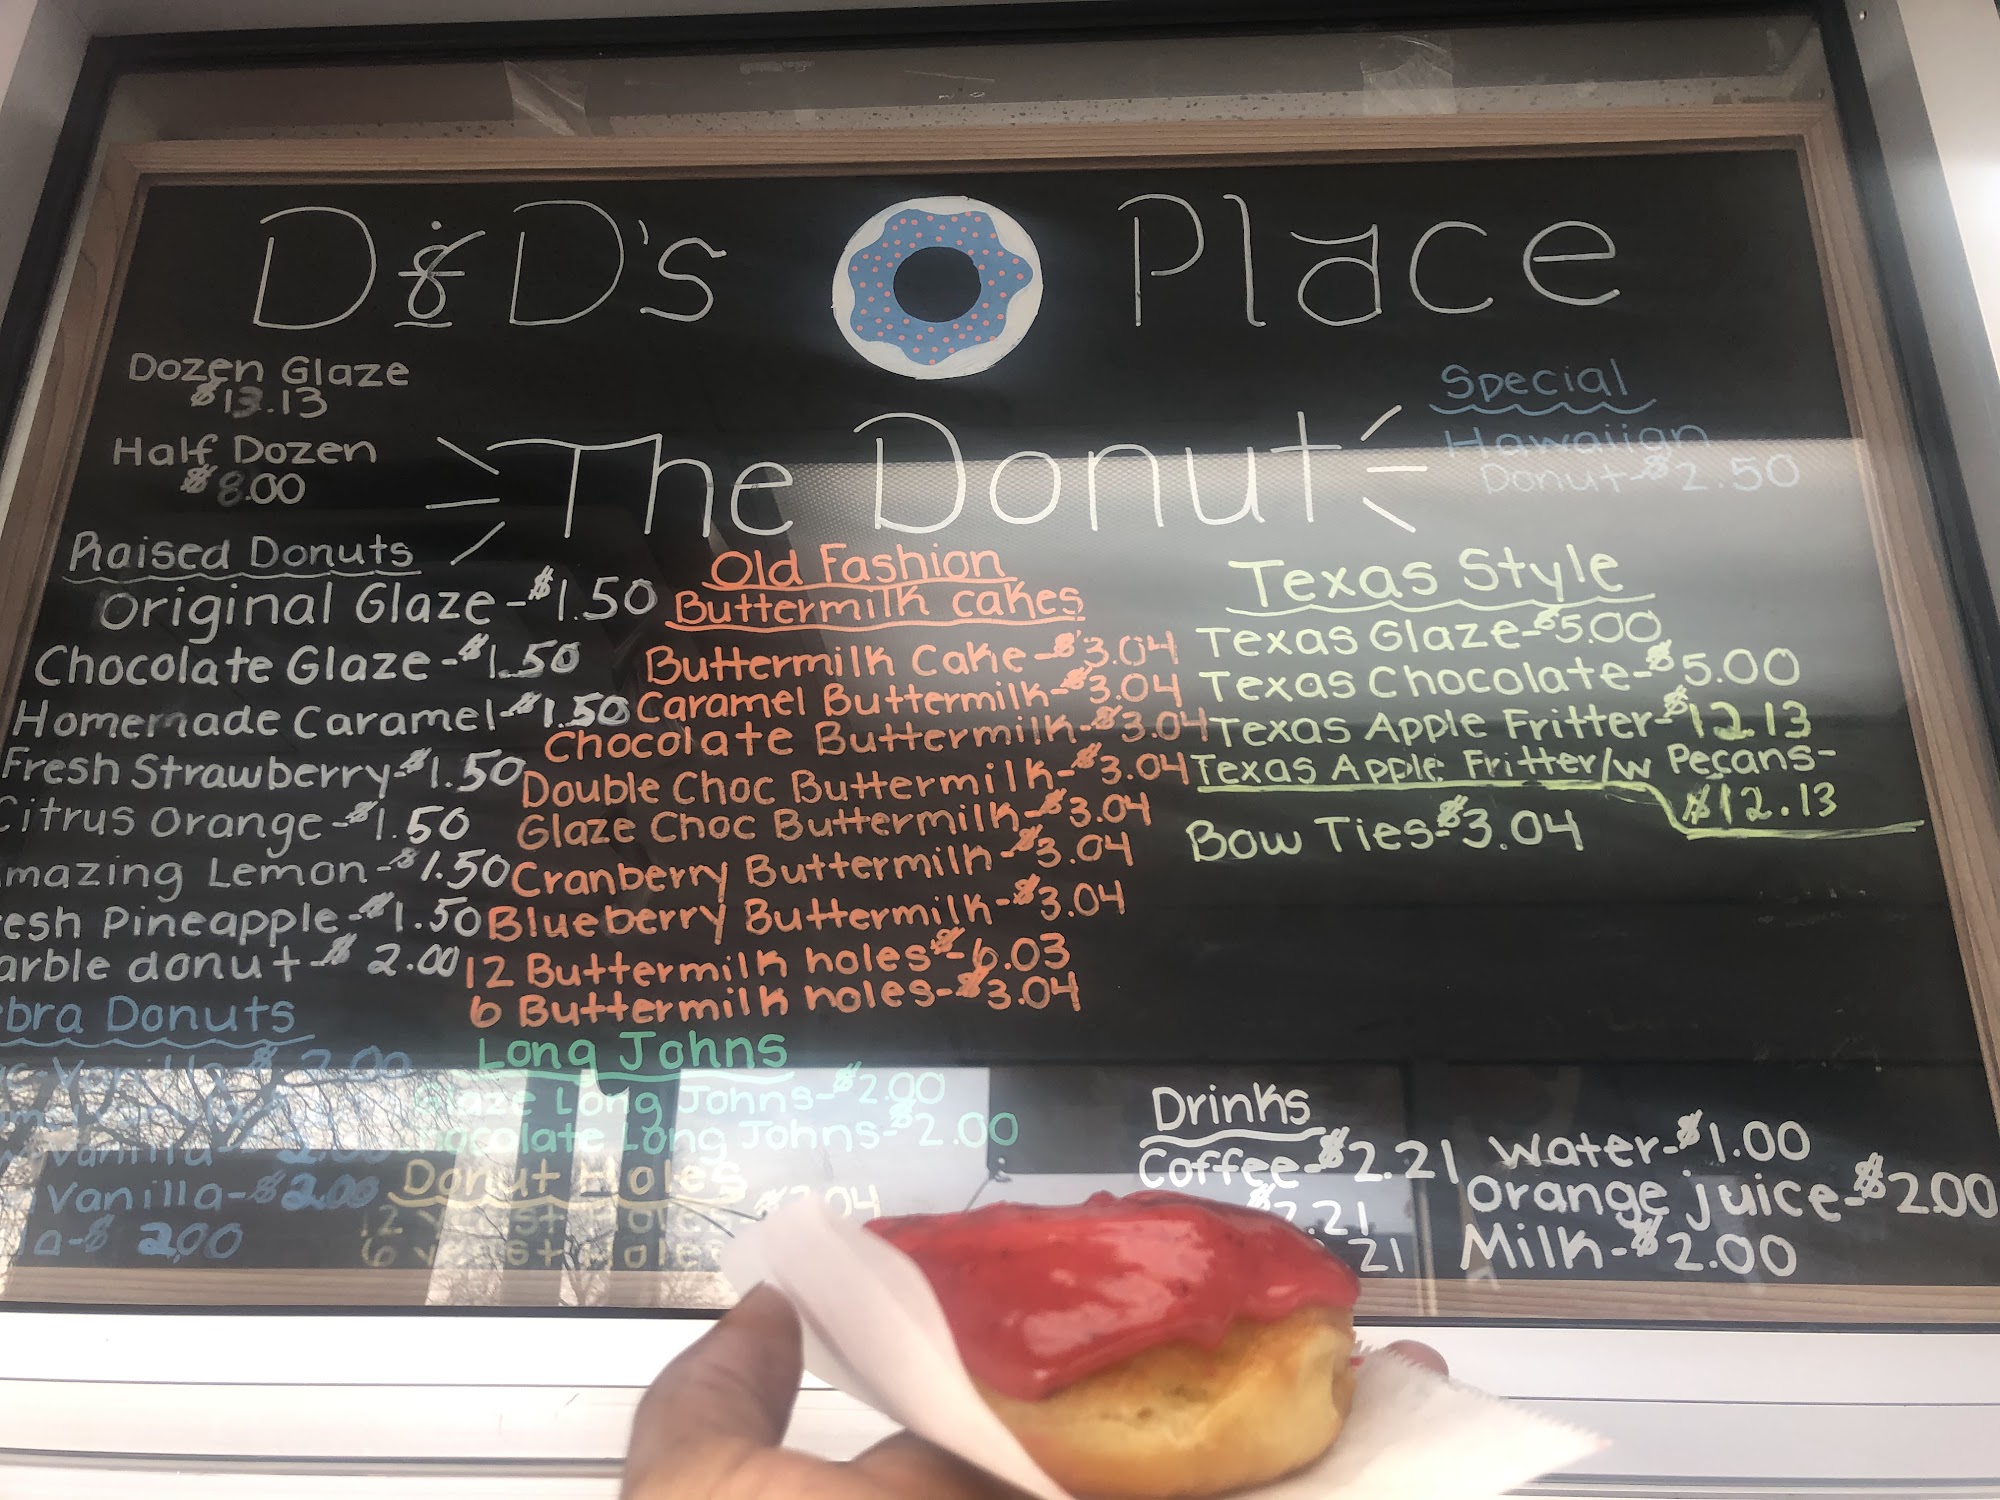 D&D's Place
The Donut
Dozen Glaze
$13.13
Half Dozen
$8.00
Special
Hawaiian
Donut-$2.50
Raised Donuts
Original Glaze-$1.50
Chocolate Glaze-$1.50
Homemade Caramel-$1.50
Fresh Strawberry-$1.50
Citrus Orange-$1.50
mazing Lemon-$1.50
esh Pineapple-$1.50
arble donut-$2.00
bra Donuts
Vanilla $2.00
Vanilla
Vanilla-$2.00
a-$2.00
Old Fashion
Buttermilk cakes
Buttermilk Cake-$3.04
Caramel Buttermilk-$3.04
Chocolate Buttermilk-$3.04
Double Choc Buttermilk-$3.04
Glaze Choc Buttermilk-$3.04
Cranberry Buttermilk-$3.04
Blueberry Buttermilk-$3.04
12 Buttermilk holes-$6.03
6 Buttermilk holes-$3.04
Long Johns
Glaze Long Johns-$2.00
ocolate Long Johns-$2.00
Donut Holes
12 Yeast Holes
6 Yeast Holes
Texas Style
Texas Glaze-$5.00
Texas Chocolate-$5.00
Texas Apple Fritter-$12.13
Texas Apple Fritter/w Pecans-
$12.13
Bow Ties-$3.04
Drinks
Coffee-$2.21
$2.21
21
Water-$1.00
Orange juice-$2.00
Milk-$2.00